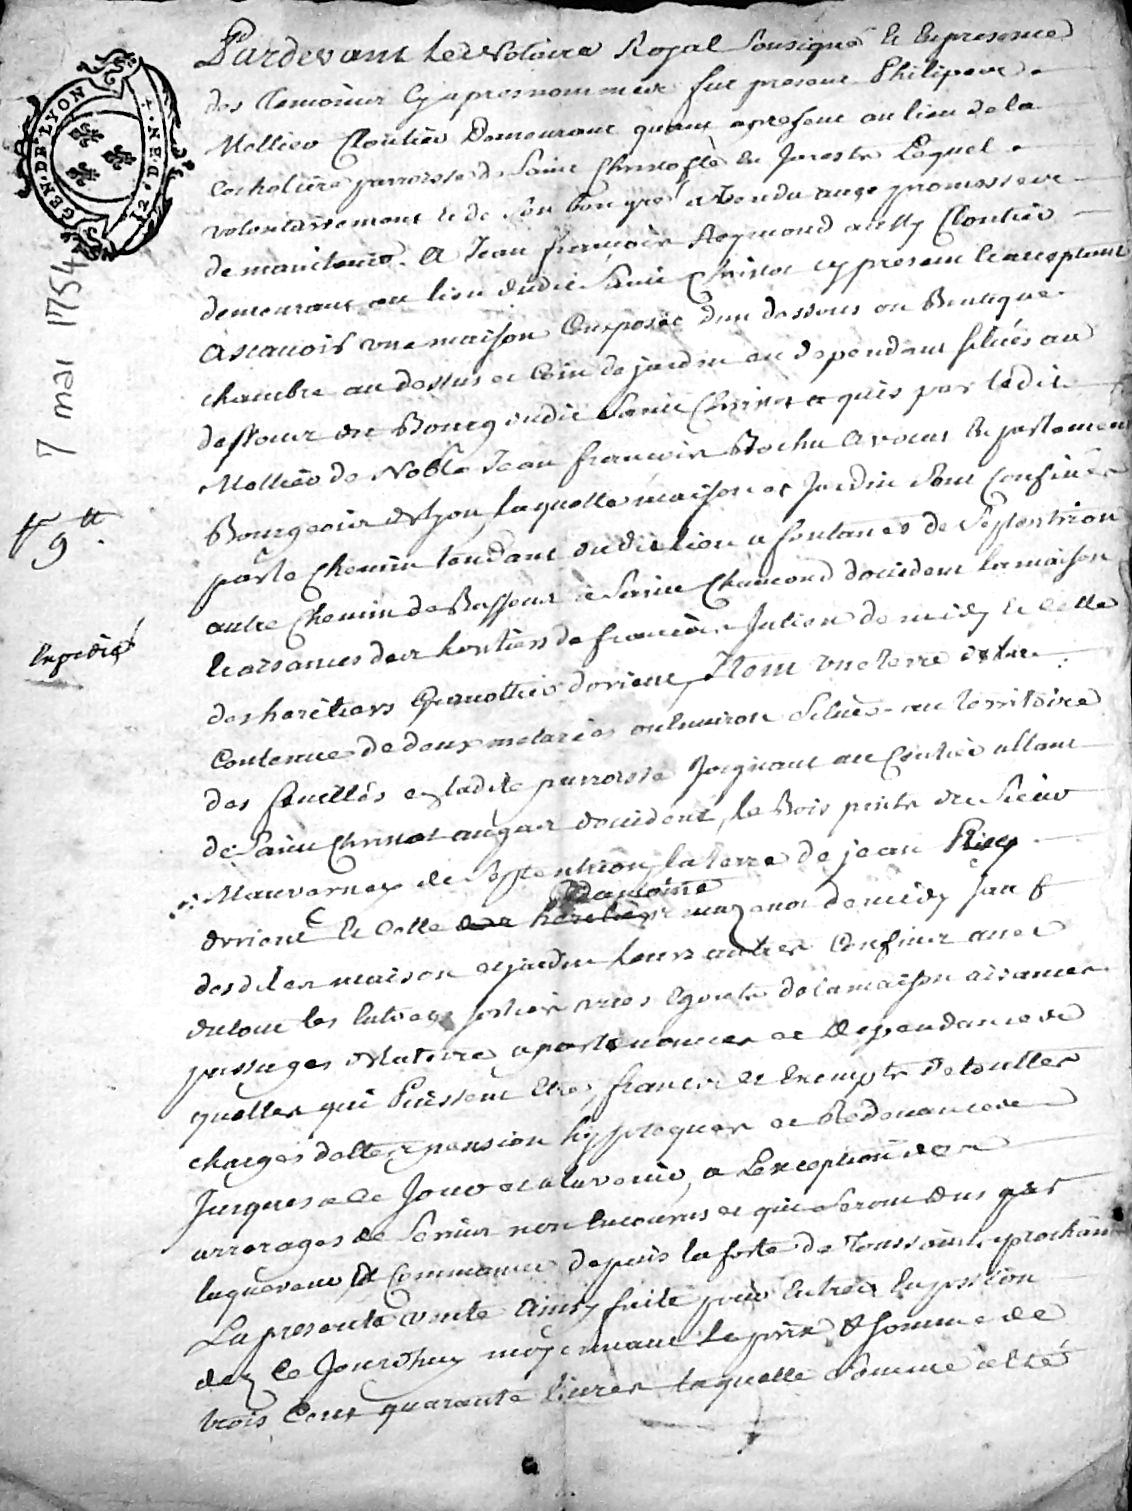 GEN. DE. LYON
12. D. AN. NED.
7 mai 1754
9 tt
Expedié
Pardevant Le Notaire Royal Sousigné et En presence
des temoins Cy apres nommes fut present Philipe
Mollier Cloutier Demeurant quant a present au lieu de la
parroisse de Saint Christofle En Jarests Lequel
volontairement et de Son bon gré a Vendu avec promesse
de maintenir A Jean françois Reymond aussy Cloutier
demeurant au lieu dudit Saint Christot cy present et acceptant
Ascavoir une maison Composée d'un dessous ou Boutique
chambre au dessus et Coin de jardin en dependant situés au
dessous du Bourg dudit Saint Christot acquis par ledit
Mollier de Noble Jean françois Avocat En parlement
Bourgeois de Lyon laquelle maison et Jardin Sont Confinés
par le Chemin tendant dudit lieu a fontanes de Septentrion
autre Chemin de a Saint Chamond d'occident la maison
et aisances des heritiers de françois Julien de midy et Celle
des heritiers d'orient, Item une terre
Contenue de deux metariés ou Environ Située au territoire
des en ladite parroisse Joignant au allant
de Saint Christot d'occident, le Bois du Sieur
Mauvernay de Septentrion, la terre de jean
d'orient et Celle des heritiers d'antoine de midy Sauf
desdites maison et jardin leurs autres Confins avec
du tout les Entrées sorties vues Egouts de la maison aisances
passages Nature apartenances et Dependances
quelles qui Puissent Etre, francs et Exempts de touttes
charges dettes pension hypoteques et Redevances
Jusques a Ce Jour et a lavenir, a Lexception des
arrerages de Servis non Encourus et qui Seront dus par
laquereur Commancer depuis la feste de Toussaint prochain
La presente vente Ainsy faite pour Entrer En possession
dez Ce Jourdhuy moyennant Le prix & Somme de
trois Cent quarante livres laquelle Somme a Eté